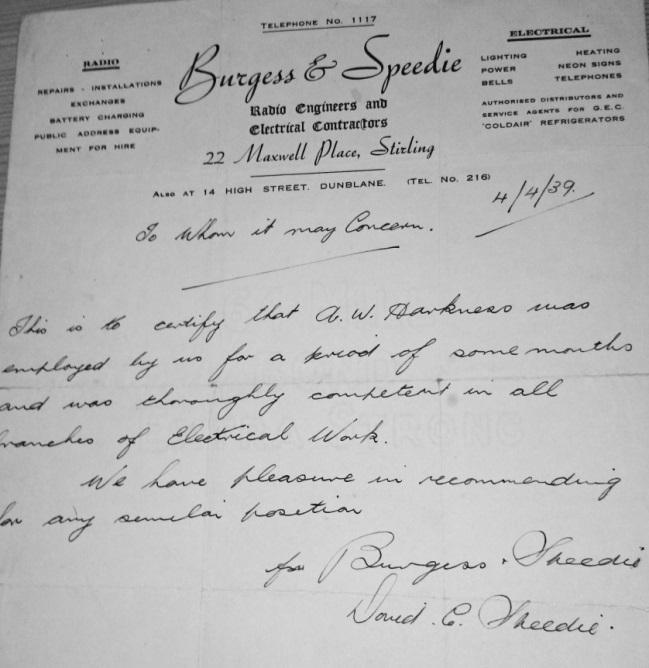 TELEPHONE NO. 1117
RADIO
REPAIRS - INSTALLATIONS
EXCHANGES
BATTERY CHARGING
PUBLIC ADDRESS EQUIP-
MENT FOR HIRE
Burgess & Speedie
Radio Engineers and
Electrical Contractors
22 Maxwell Place, Stirling
ELECTRICAL
LIGHTING HEATING
POWER NEON SIGNS
BELLS TELEPHONES
AUTHORISED DISTRIBUTORS AND
SERVICE AGENTS FOR G.E.C.
'COLDAIR' REFRIGERATORS
ALSO AT 14 HIGH STREET. DUNBLANE. (TEL. NO. 216)
4/4/39.
To Whom it may Concern.
This is to certify that A. W. Harkness was
employed by us for a period of some months
and was thoroughly competent in all
ranches of Electrical Work.
We have pleasure in recommending
for any similar position
for Burgess & Speedie
David C. Speedie.